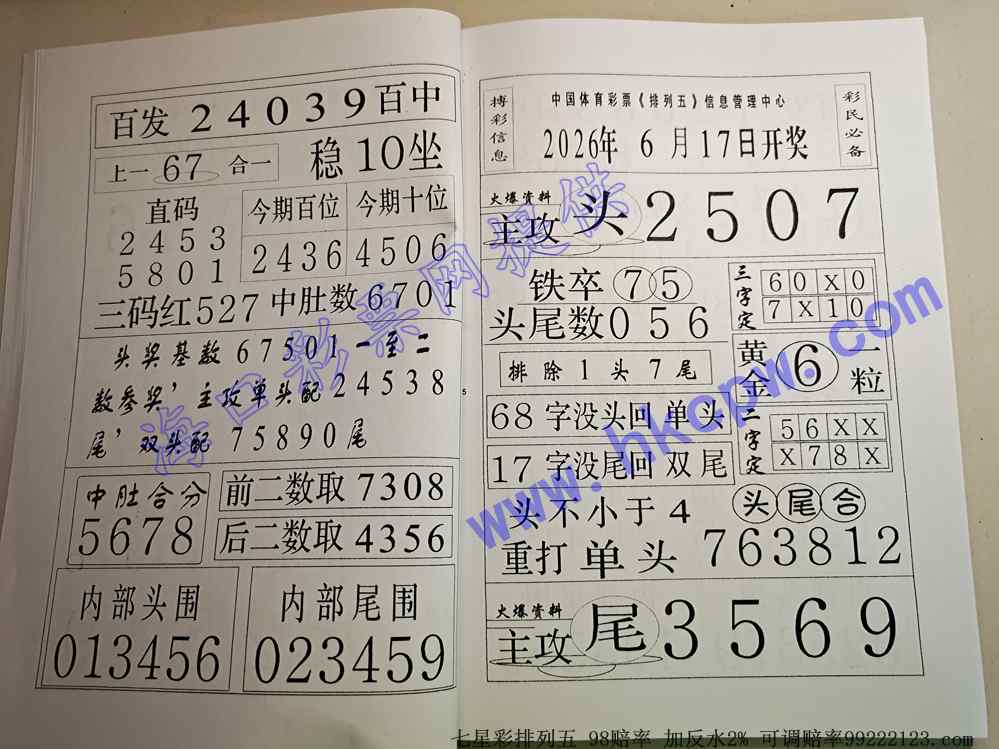 百发 24039 百中
上一 67 合一
稳10坐
直码
2453
5801
今期百位 今期十位
2436 4506
三码红527 中肚数6701
头奖基数67501一至二
数参奖’主攻单头配24538
尾’双头配 75890尾
中肚合分
5678
前二数取 7308
后二数取 4356
内部头围
013456
内部尾围
023459
5
搏彩信息
中国体育彩票《排列五》信息管理中心
2026年 6 月17日开奖
彩民必备
火爆资料
主攻 头 2507
铁卒 75
头尾数056
排除1头7尾
三字定
60X0
7X10
黄金 6 一粒
68字没头回单头
17字没尾回双尾
二字定
56XX
X78X
头不小于4
头尾合
重打单头 763812
火爆资料
主攻 尾 3569
海口彩票网提供
www.hkcpw.com
七星彩排列五 98赔率 加反水2% 可调赔率99222123.com